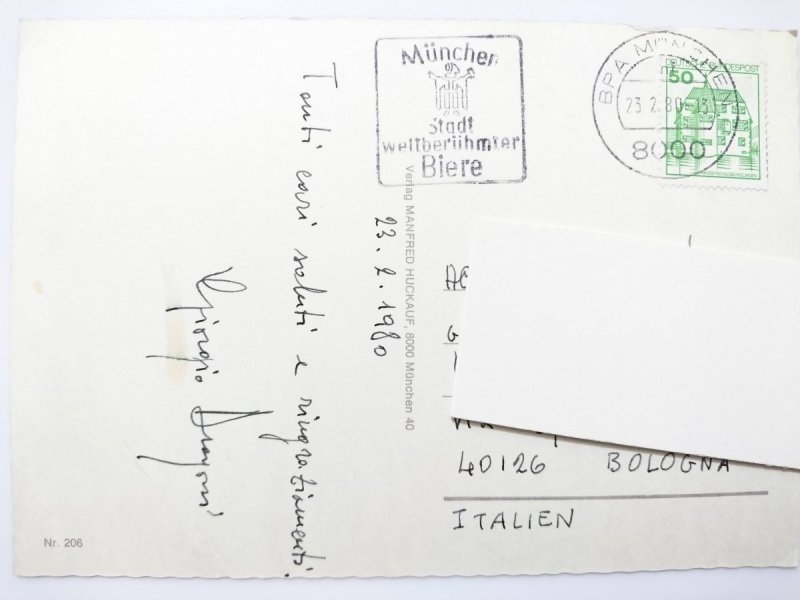 München
Stadt
weltberühmter
Biere
BPA MÜNCHEN
23.2.80-13
8000
50
DEUTSCHE BUNDESPOST
Tanti cari saluti e ringraziamenti.
Giorgio Dragoni
23.2.1980
Verlag MANFRED HUCKAUF, 8000 München 40
40126 BOLOGNA
ITALIEN
Nr. 206